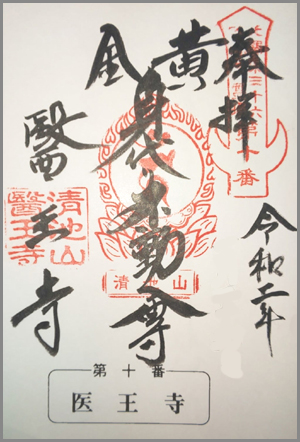 奉拝
三十六
第十番
令和二年
黄金
身代り不動尊
清池山
醫王寺
清池山
醫王寺
第十番
医王寺